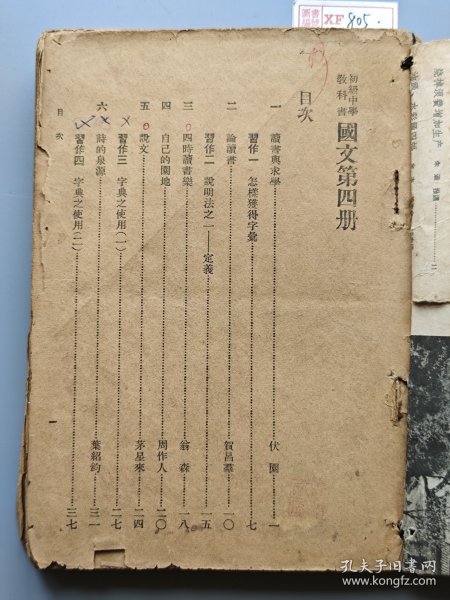 初級中學
教科書
國文第四册
目次
一 讀書與求學 伏園 一
習作一 怎樣獲得字彙 七
二 論讀書 賀呂羣 一〇
習作二 說明法之一——定義 一五
三 四時讀書樂 翁森 一八
四 自己的園地 周作人 二〇
五 說文 茅星來 二四
習作三 字典之使用(一) 二七
六 詩的泉源 葉紹鈞 三一
習作四 字典之使用(二) 三七
目次
一
XF 805.
孔夫子旧书网
www.kongfz.com